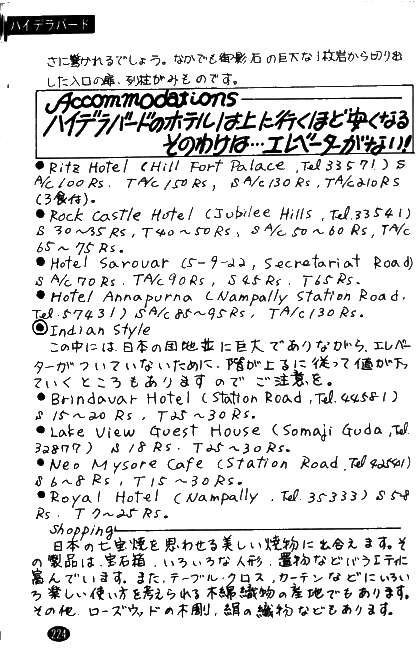 ハイデラバード
さに驚かれるでしょう。なかでも御影石の巨大な1枚岩から切り出
した入口の扉、列柱がみものです。
Accommodations
ハイデラバードのホテルは上に行くほど安くなる
そのわけは…エレベーターがない!!
●Ritz Hotel (Hill Fort Palace, Tel 33571) S
A/C 100 Rs. T A/C 150 Rs, S A/C 130 Rs, T A/C 210 Rs
(3食付)。
●Rock Castle Hotel (Jubilee Hills, Tel. 33541)
S 30~35 Rs, T 40~50 Rs, S A/C 50~60 Rs, T A/C
65~75 Rs.
●Hotel Sarovar (5-9-22, Secretariat Road)
S A/C 70 Rs. T A/C 90 Rs, S 45 Rs. T 65 Rs.
●Hotel Annapurna (Nampally Station Road,
Tel. 57431) S A/C 85~95 Rs, T A/C 130 Rs.
◎Indian Style
この中には、日本の団地並に巨大でありながら、エレベー
ターがついていないために、階が上るに従って値が下っ
ていくところもありますのでご注意を。
●Brindavar Hotel (Station Road, Tel. 44581)
S 15~20 Rs, T 25~30 Rs.
●Lake View Guest House (Somaji Guda, Tel.
32877) S 18 Rs. T 25~30 Rs.
●Neo Mysore Cafe (Station Road, Tel 42541)
S 6~8 Rs, T 15~30 Rs.
●Royal Hotel (Nampally, Tel. 35333) S 5-8
Rs. T 7~25 Rs.
Shopping
日本の七宝焼を思わせる美しい焼物に出合えます。そ
の製品は、宝石箱、いろいろな人形、置物などバラエティに
富んでいます。また、テーブル・クロス、カーテンなどにいろい
ろ楽しい使い方を考えられる木綿織物の産地でもあります。
その他、ローズウッドの木彫、絹の織物などもあります。
224